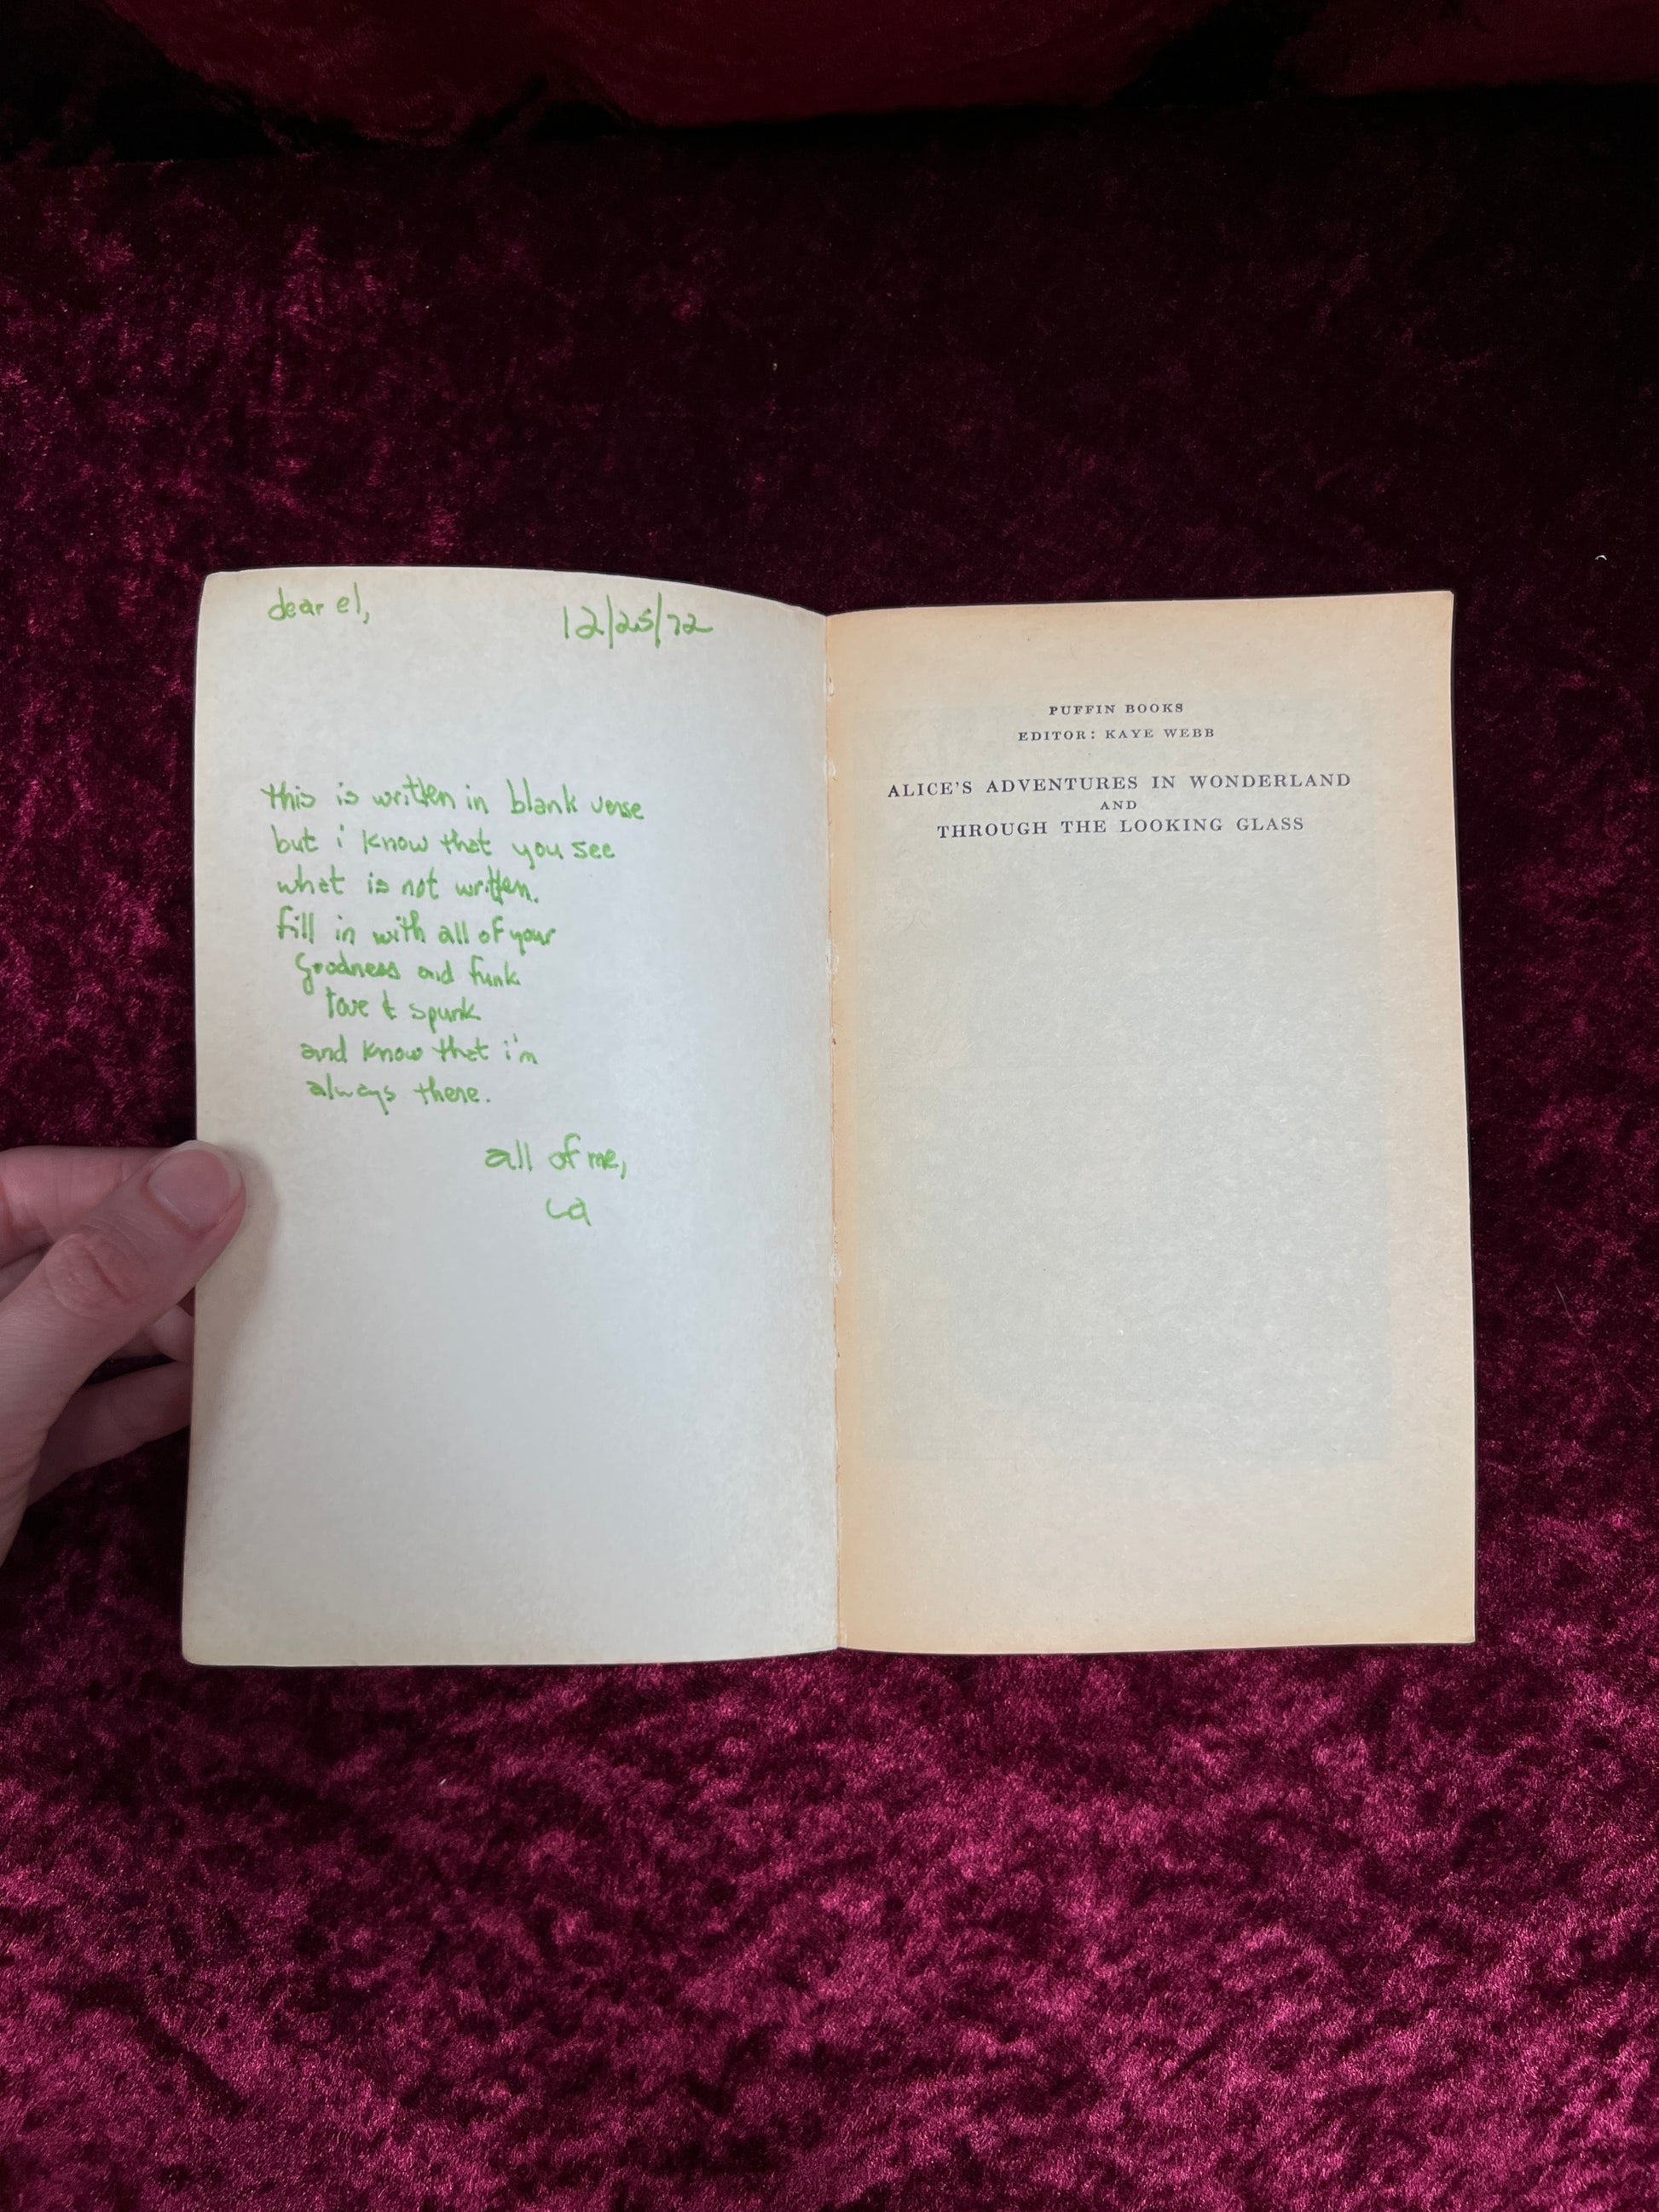 dear el,
12/25/72
this is written in blank verse
but i know that you see
what is not written.
fill in with all of your
goodness and funk
love & spunk
and know that i'm
always there.
all of me,
La
PUFFIN BOOKS
EDITOR: KAYE WEBB
ALICE'S ADVENTURES IN WONDERLAND
AND
THROUGH THE LOOKING GLASS